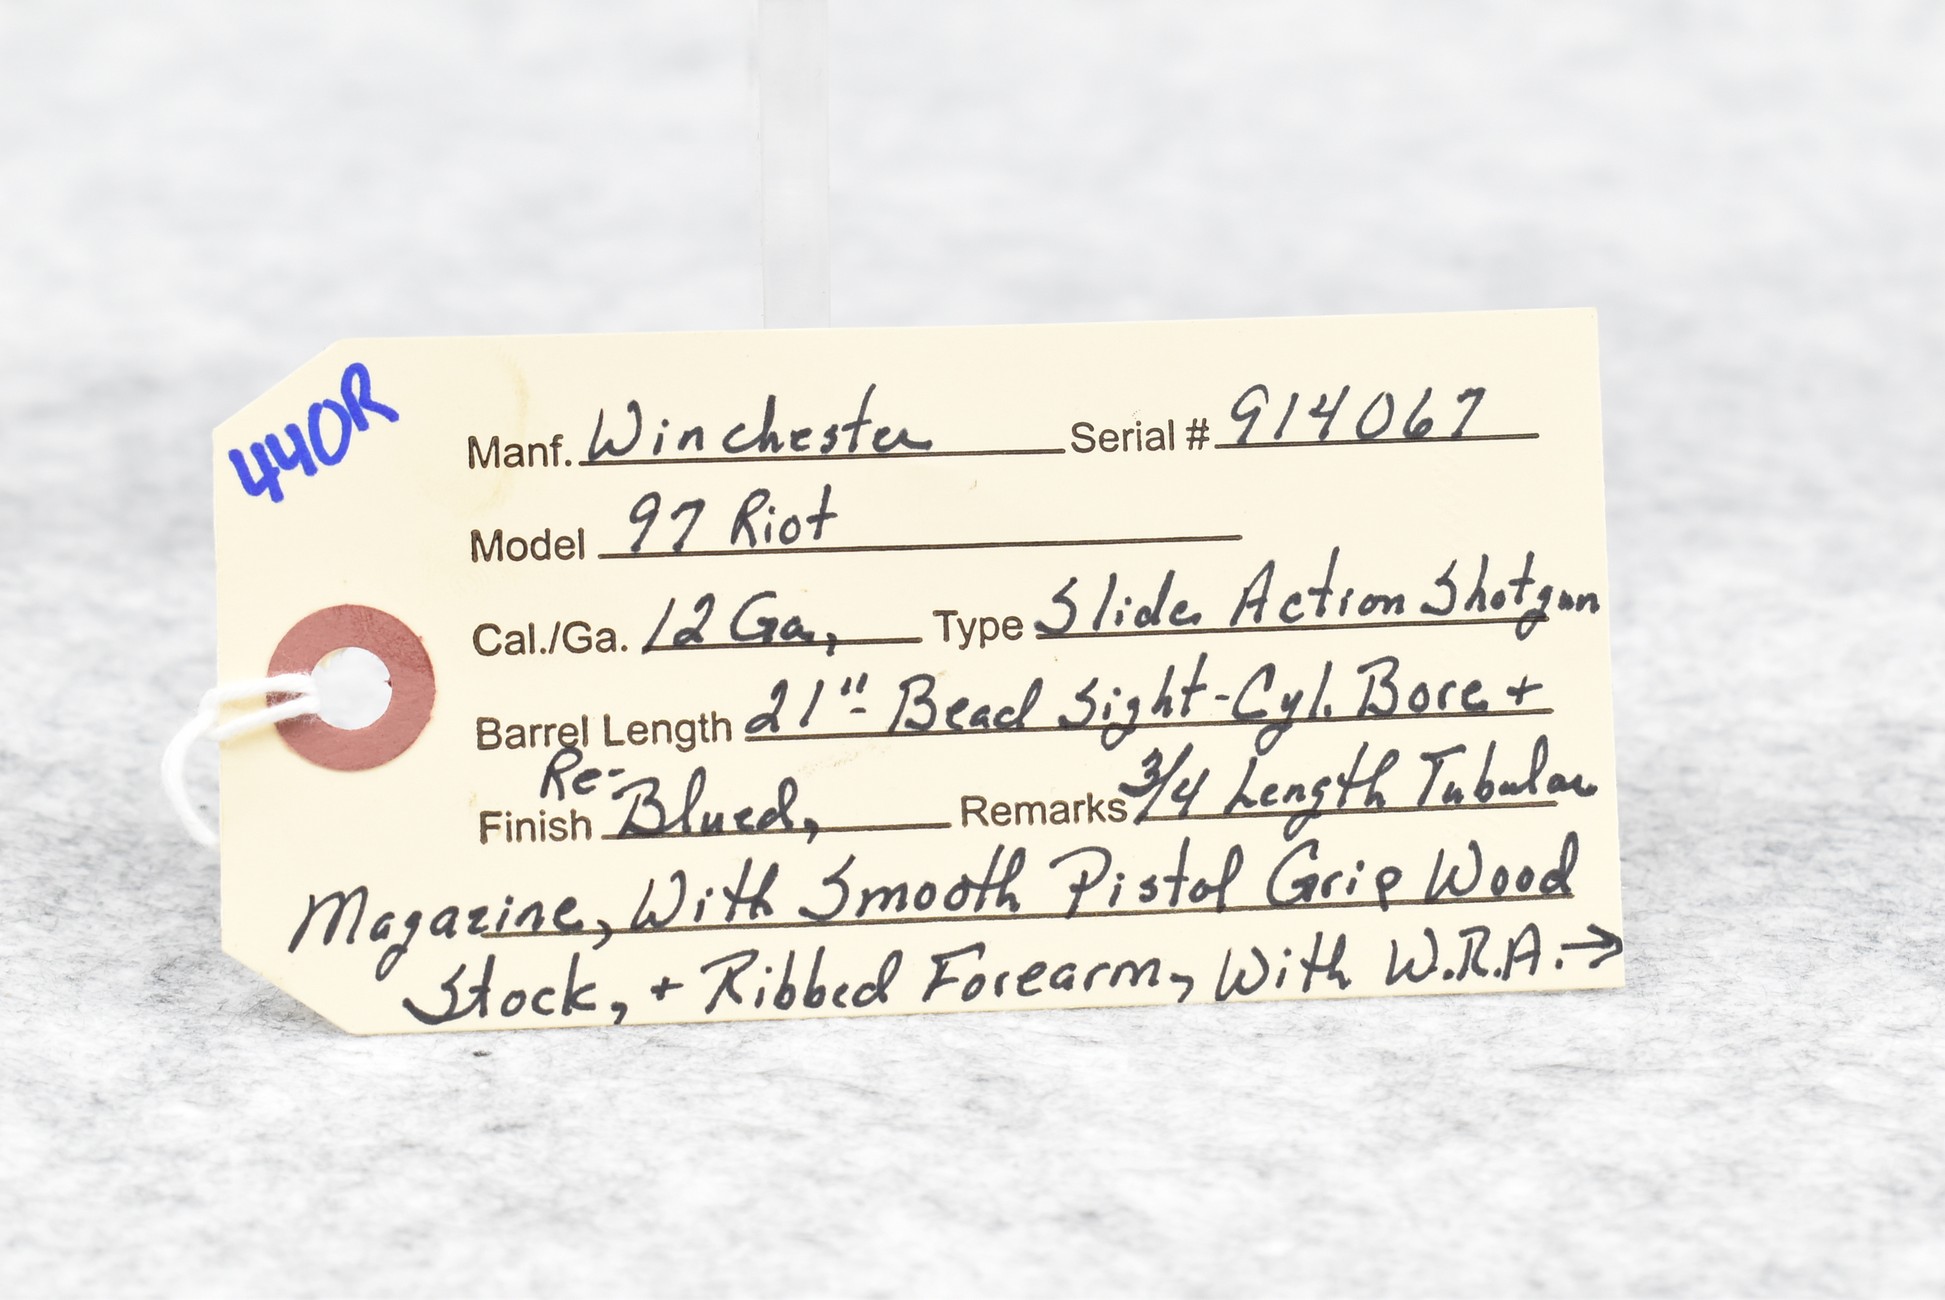 440R
Manf. Winchester Serial # 914067
Model 97 Riot
Cal./Ga. 12 Ga, Type Slide Action Shotgun
Barrel Length 21"- Bead Sight-Cyl. Bore +
Finish Re-Blued, Remarks 3/4 Length Tubular
Magazine, With Smooth Pistol Grip Wood
Stock, + Ribbed Forearm, With W.R.A. →